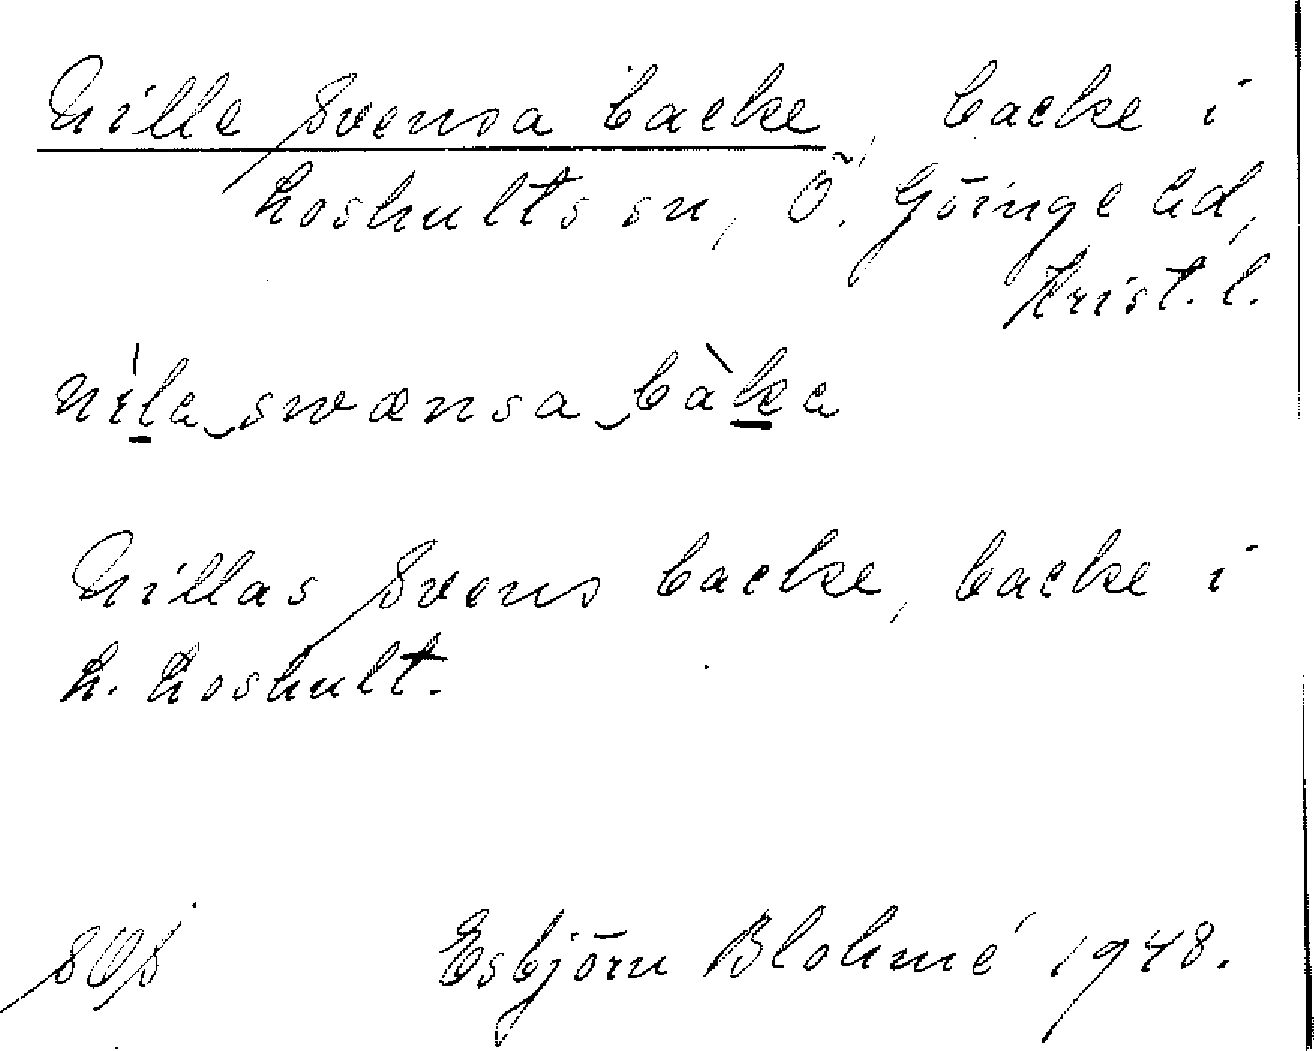 Nille Svensa backe, backe i
Loshults sn, Ö. Göinge hd,
Krist. l.
nila swænsa bàka
Nillas Svens backe, backe i
L. Loshult.
Esbjörn Blohmé 1948.